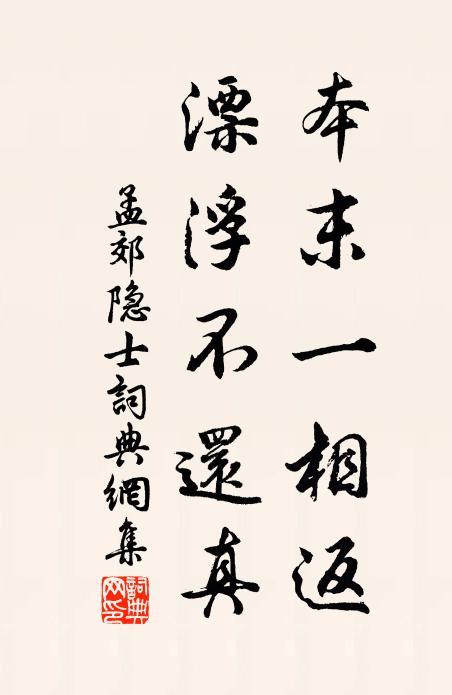 本末一相返
漂浮不還真
孟郊隐士詞典網集
詞典網印